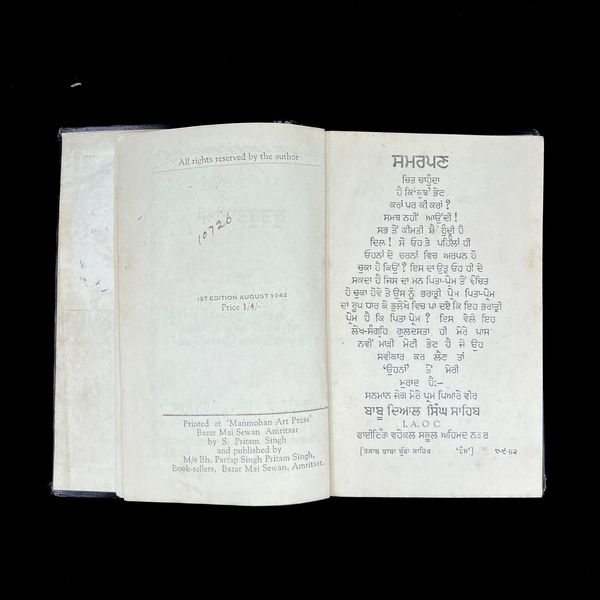 All rights reserved by the author
10726
1ST EDITION AUGUST 1942
Price 1/4/-
Printed at 'Manmohan Art Press'
Bazar Mai Sewan Amritsar
by S Pritam Singh
and published by
M/s Bh. Partap Singh Pritam Singh,
Book-sellers, Bazar Mai Sewan, Amritsar,
ਸਮਰਪਣ
ਚਿਤ ਚਾਹੁੰਦਾ
ਹੈ ਕਿ 'ਕੁਝ' ਭੇਟ
ਕਰਾਂ ਪਰ ਕੀ ਕਰਾਂ ?
ਸਮਝ ਨਹੀਂ ਆਉਂਦੀ !
ਸਭ ਤੋਂ ਕੀਮਤੀ ਸ਼ੈ ਹੁੰਦੀ ਹੈ
ਦਿਲ ! ਸੋ ਓਹ ਤੇ ਪਹਿਲਾਂ ਹੀ
ਓਹਨਾਂ ਦੇ ਚਰਨਾਂ ਵਿਚ ਅਰਪਨ ਹੋ
ਚੁਕਾ ਹੈ ਕਿਉਂ ? ਇਸ ਦਾ ਉਤ੍ਰ ਓਹ ਹੀ ਦੇ
ਸਕਦਾ ਹੈ ਜਿਸ ਦਾ ਮਨ ਪਿਤਾ-ਪ੍ਰੇਮ ਤੋਂ ਵੰਚਿਤ
ਹੋ ਚੁਕਾ ਹੋਵੇ ਤੇ ਉਸ ਨੂੰ ਭਰਾਤ੍ਰੀ ਪ੍ਰੇਮ ਪਿਤਾ-ਪ੍ਰੇਮ
ਦਾ ਰੂਪ ਧਾਰ ਕੇ ਭੁਲੇਖੇ ਵਿਚ ਪਾ ਦਏ ਕਿ ਇਹ ਭਰਾਤ੍ਰੀ
ਪ੍ਰੇਮ ਹੈ ਕਿ ਪਿਤਾ ਪ੍ਰੇਮ ? ਇਸ ਵੇਲੇ ਇਹ
ਲੇਖ-ਸੰਗ੍ਰਹਿ ਗੁਲਦਸਤਾ ਹੀ ਮੇਰੇ ਪਾਸ
ਨਵੀਂ ਮਾੜੀ ਮੋਟੀ ਭੇਟ ਹੈ ਜੇ ਉਹ
ਸਵੀਕਾਰ ਕਰ ਲੈਣ ਤਾਂ
'ਉਹਨਾਂ' ਤੋਂ ਮੇਰੀ
ਮੁਰਾਦ ਹੈ:—
ਸਨਮਾਨ ਜੋਗ ਮੇਰੇ ਪ੍ਰਮ ਪਿਆਰੇ ਵੀਰ
ਬਾਬੂ ਦਿਆਲ ਸਿੰਘ ਸਾਹਿਬ
I. A. O C
ਫਾਈਟਿੰਗ ਵਹੇਕਲ ਸਕੂਲ ਅਹਿਮਦ ਨਗਰ
[ਤਲਾਬ ਬਾਬਾ ਬੁੱਢਾ ਸਾਹਿਬ 'ਹੰਸ'